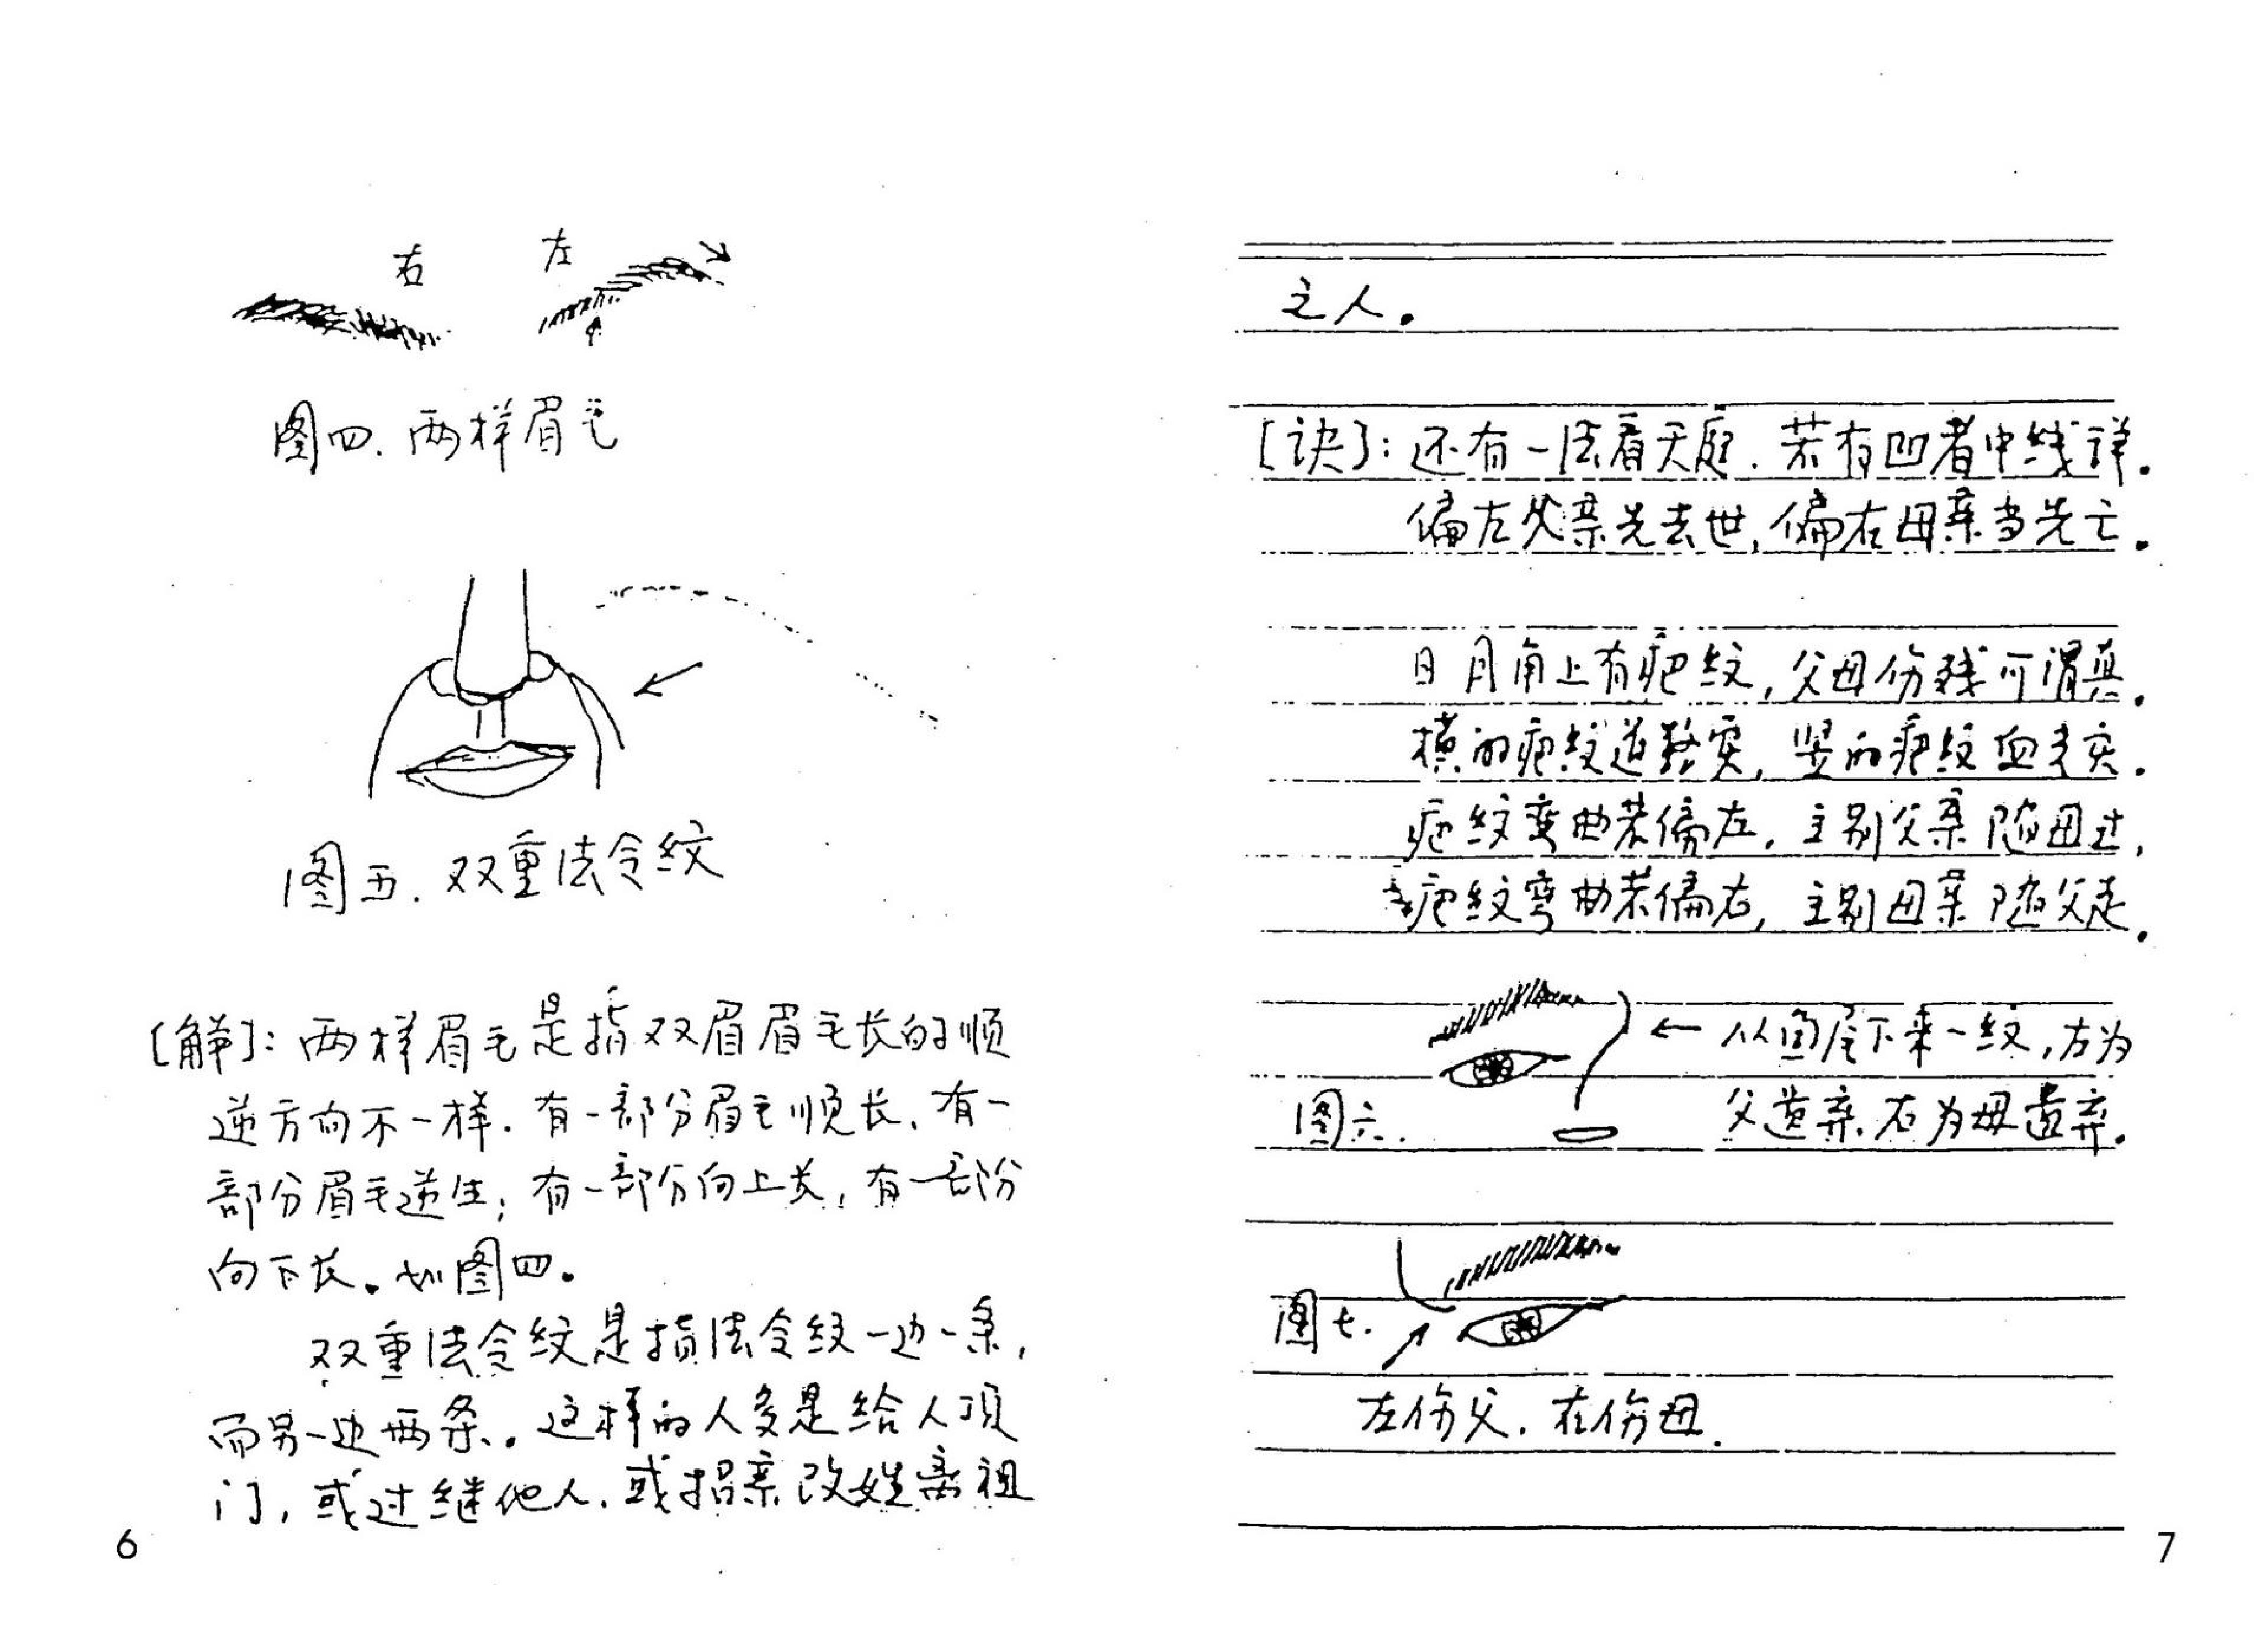 右 左
图四.两样眉毛
图五.双重法令纹
[解]: 两样眉毛是指双眉眉毛长的顺
逆方向不一样.有一部分眉毛顺长,有一
部分眉毛逆生;有一部分向上长,有一部份
向下长。如图四。
双重法令纹是指法令纹一边一条,
而另一边两条。这样的人多是给人顶
门,或过继他人,或招亲改姓离祖
6
之人。
[诀]: 还有一法看天庭.若有凹者中线详.
偏左父亲先去世,偏右母亲当先亡.
日月角上有疤纹,父母伤残可谓真.
横的疤纹道路突,竖的疤纹血光突.
疤纹弯曲若偏左,主别父亲随母过,
疤纹弯曲若偏右,主别母亲随父走.
←从鱼尾下来一纹,左为
图六. 父遗弃,右为母遗弃.
图七.
左伤父.右伤母.
7